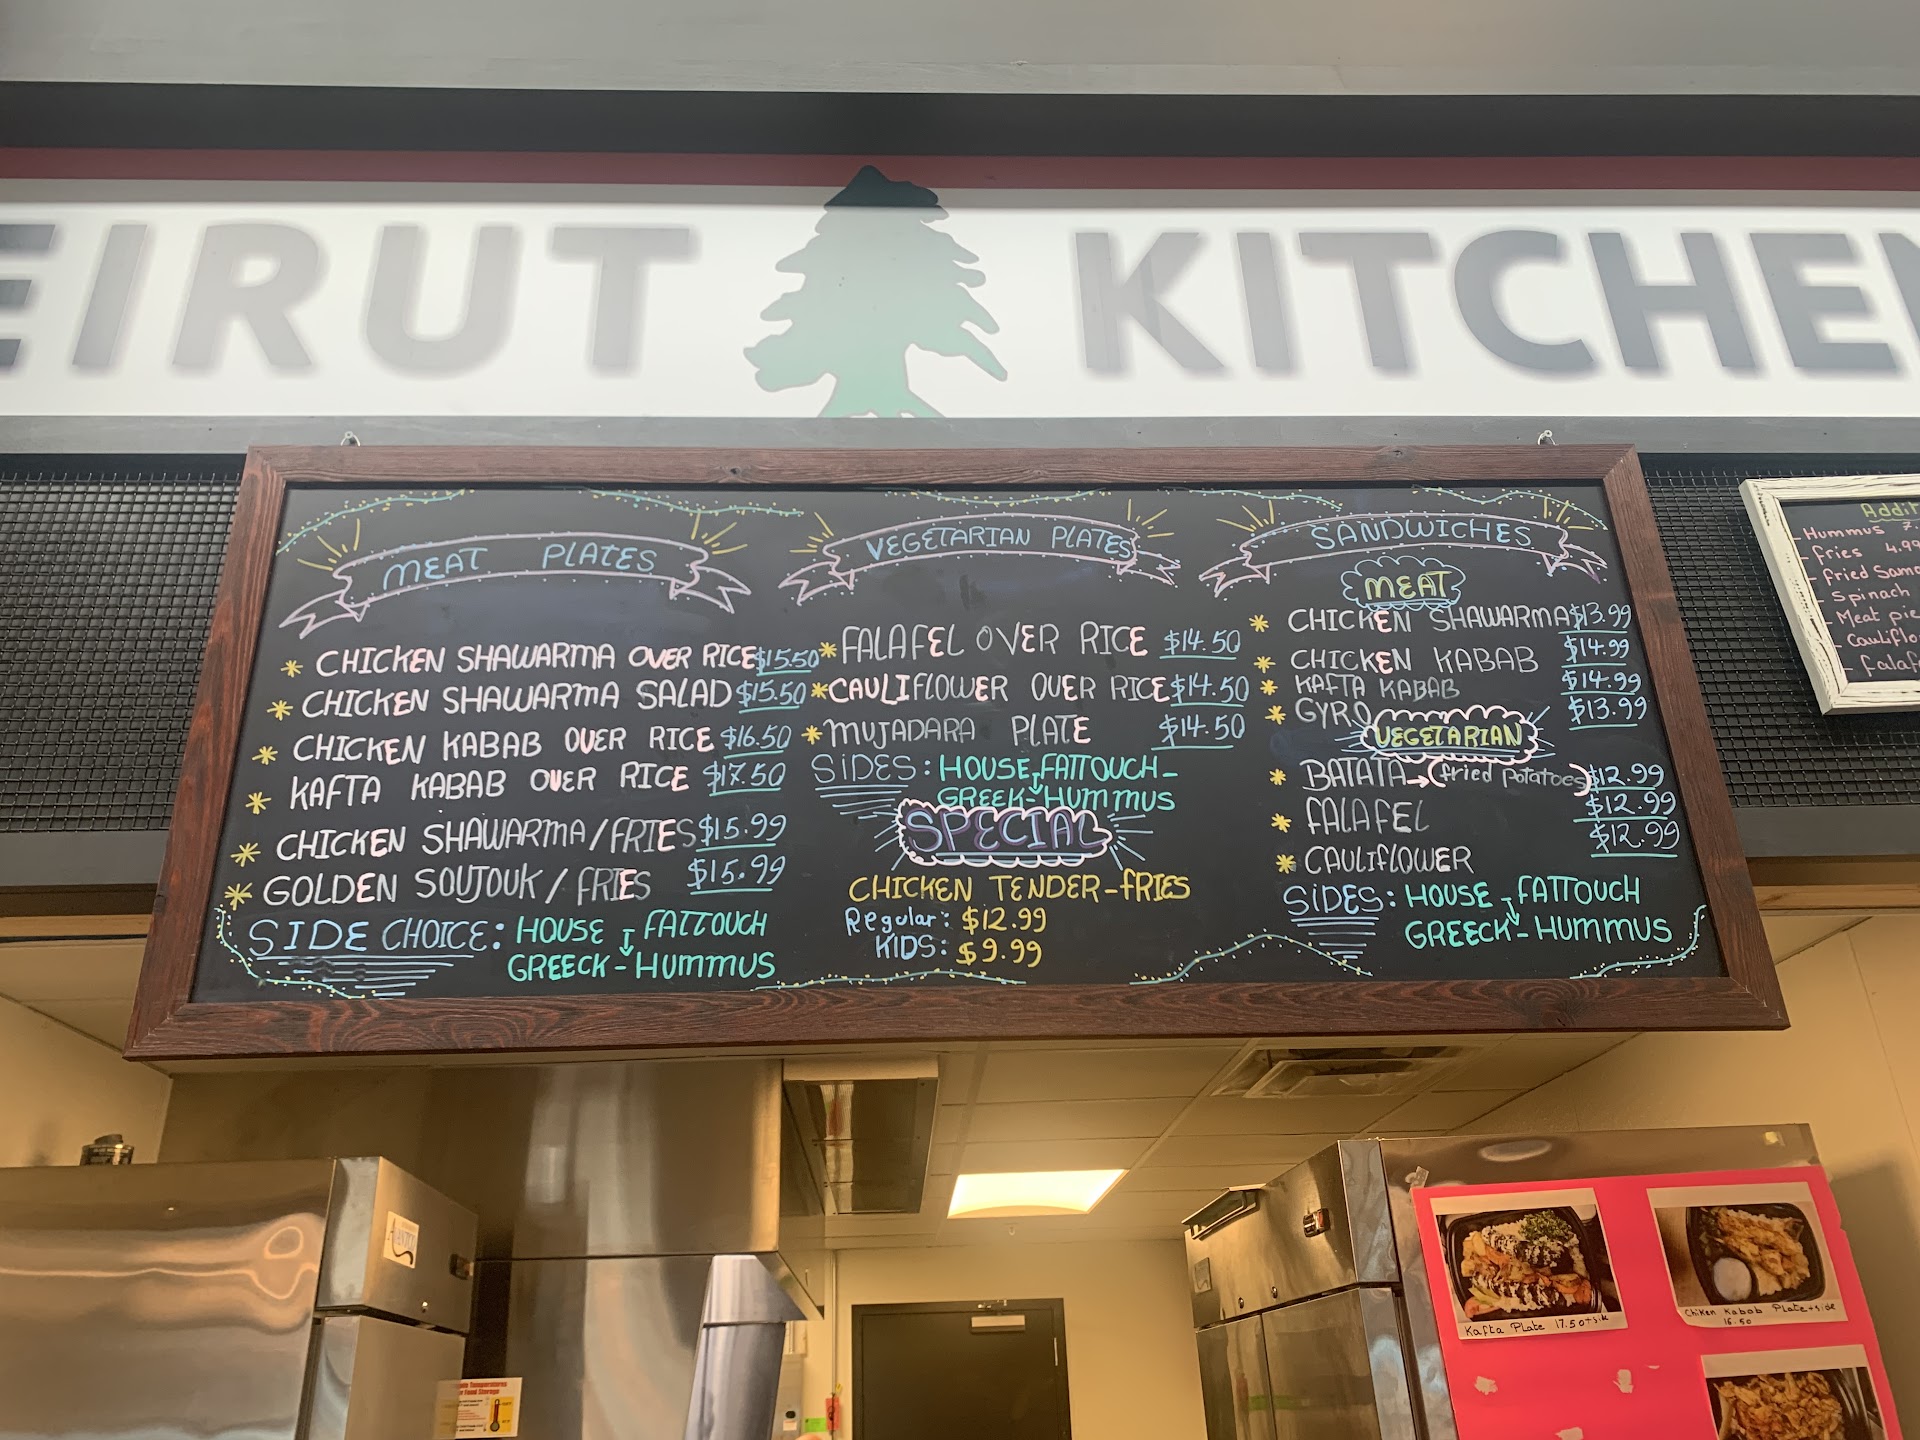 EIRUT KITCHEN
MEAT PLATES
* CHICKEN SHAWARMA OVER RICE $15.50
* CHICKEN SHAWARMA SALAD $15.50
* CHICKEN KABAB OVER RICE $16.50
* KAFTA KABAB OVER RICE $17.50
* CHICKEN SHAWARMA/FRIES $15.99
* GOLDEN SOUJOUK/FRIES $15.99
SIDE CHOICE: HOUSE FATTOUCH
GREECK-HUMMUS
VEGETARIAN PLATES
* FALAFEL OVER RICE $14.50
* CAULIFLOWER OVER RICE $14.50
* MUJADARA PLATE $14.50
SIDES: HOUSE FATTOUCH-
GREEK-HUMMUS
SPECIAL
CHICKEN TENDER-FRIES
Regular: $12.99
KIDS: $9.99
SANDWICHES
MEAT
* CHICKEN SHAWARMA $13.99
* CHICKEN KABAB $14.99
* KAFTA KABAB $14.99
* GYRO $13.99
VEGETARIAN
* BATATA→(fried potatoes) $12.99
* FALAFEL $12.99
* CAULIFLOWER $12.99
SIDES: HOUSE FATTOUCH
GREECK-HUMMUS
Addit
- Hummus 7.
- fries 4.99
- fried Samo
- Spinach
- Meat pie
- Cauliflo
- falaf
Kafta Plate 17.50+sik
Chiken Kabob Plate+side
16.50